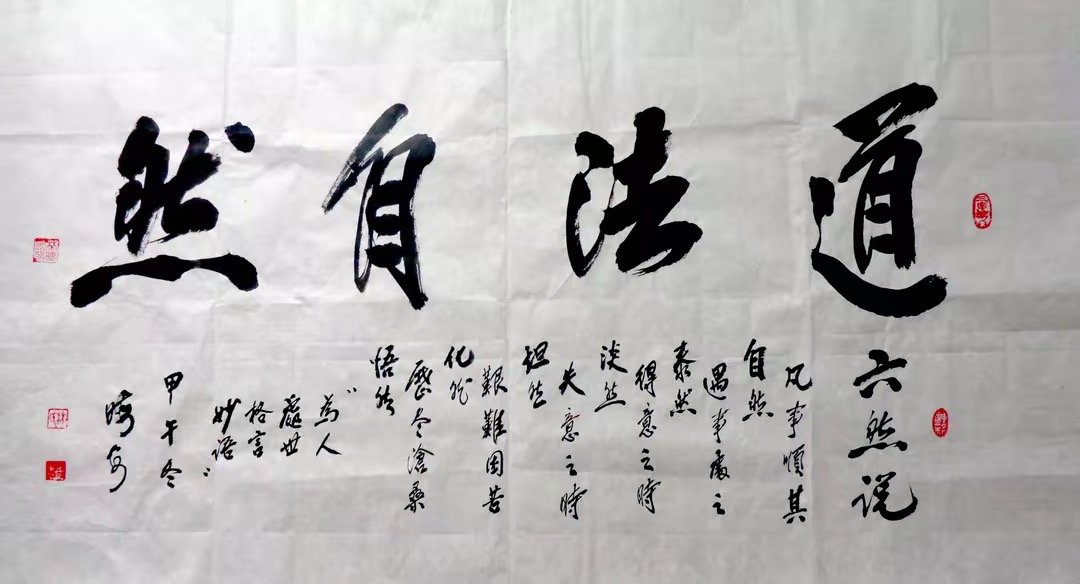 道法自然
六然说
凡事順其
自然
遇事處之
泰然
得意之時
淡然
失意之時
坦然
艱難困苦
化然
歷尽滄桑
悟然
“为人
處世
格言
妙语”
甲午冬